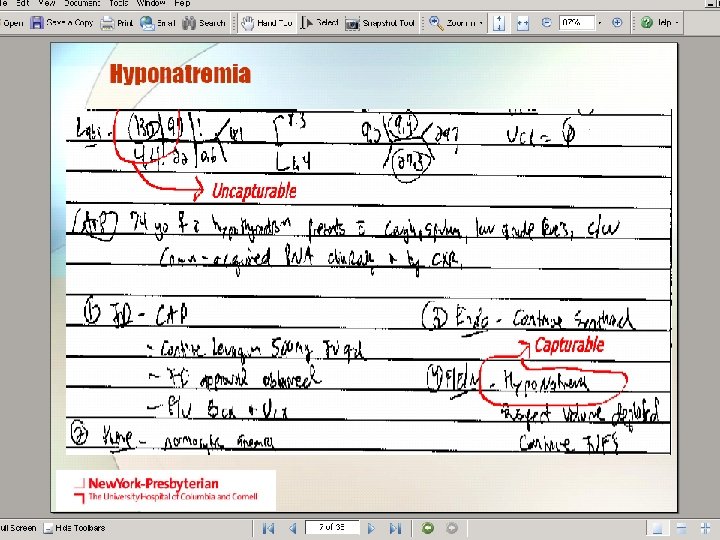 File Edit View Document Tools Window Help
Open Save a Copy Print Email Search Hand Tool Select Snapshot Tool Zoom In 87% Help
Hyponatremia
Labs - 130 97 11 8.3 9.4 297 UCx = Ø
4.4 22 0.6 6.4 27.3
Uncapturable
(A+P) 74 yo f c hypothyroidism presents c cough, sputum, low grade fevers, c/w
Comm-acquired PNA clinically + by CXR.
① ID - CAP ③ Endo - Continue Synthroid
Capturable
- Continue levaquin 500mg IV qd ④ F/E/N - Hyponatremia
- ID approval obtained
- F/U BCx + UCx - Suspect volume depleted
② Heme - normocytic anemia Continue IVFs
NewYork-Presbyterian
The University Hospital of Columbia and Cornell
Full Screen Hide Toolbars 7 of 35